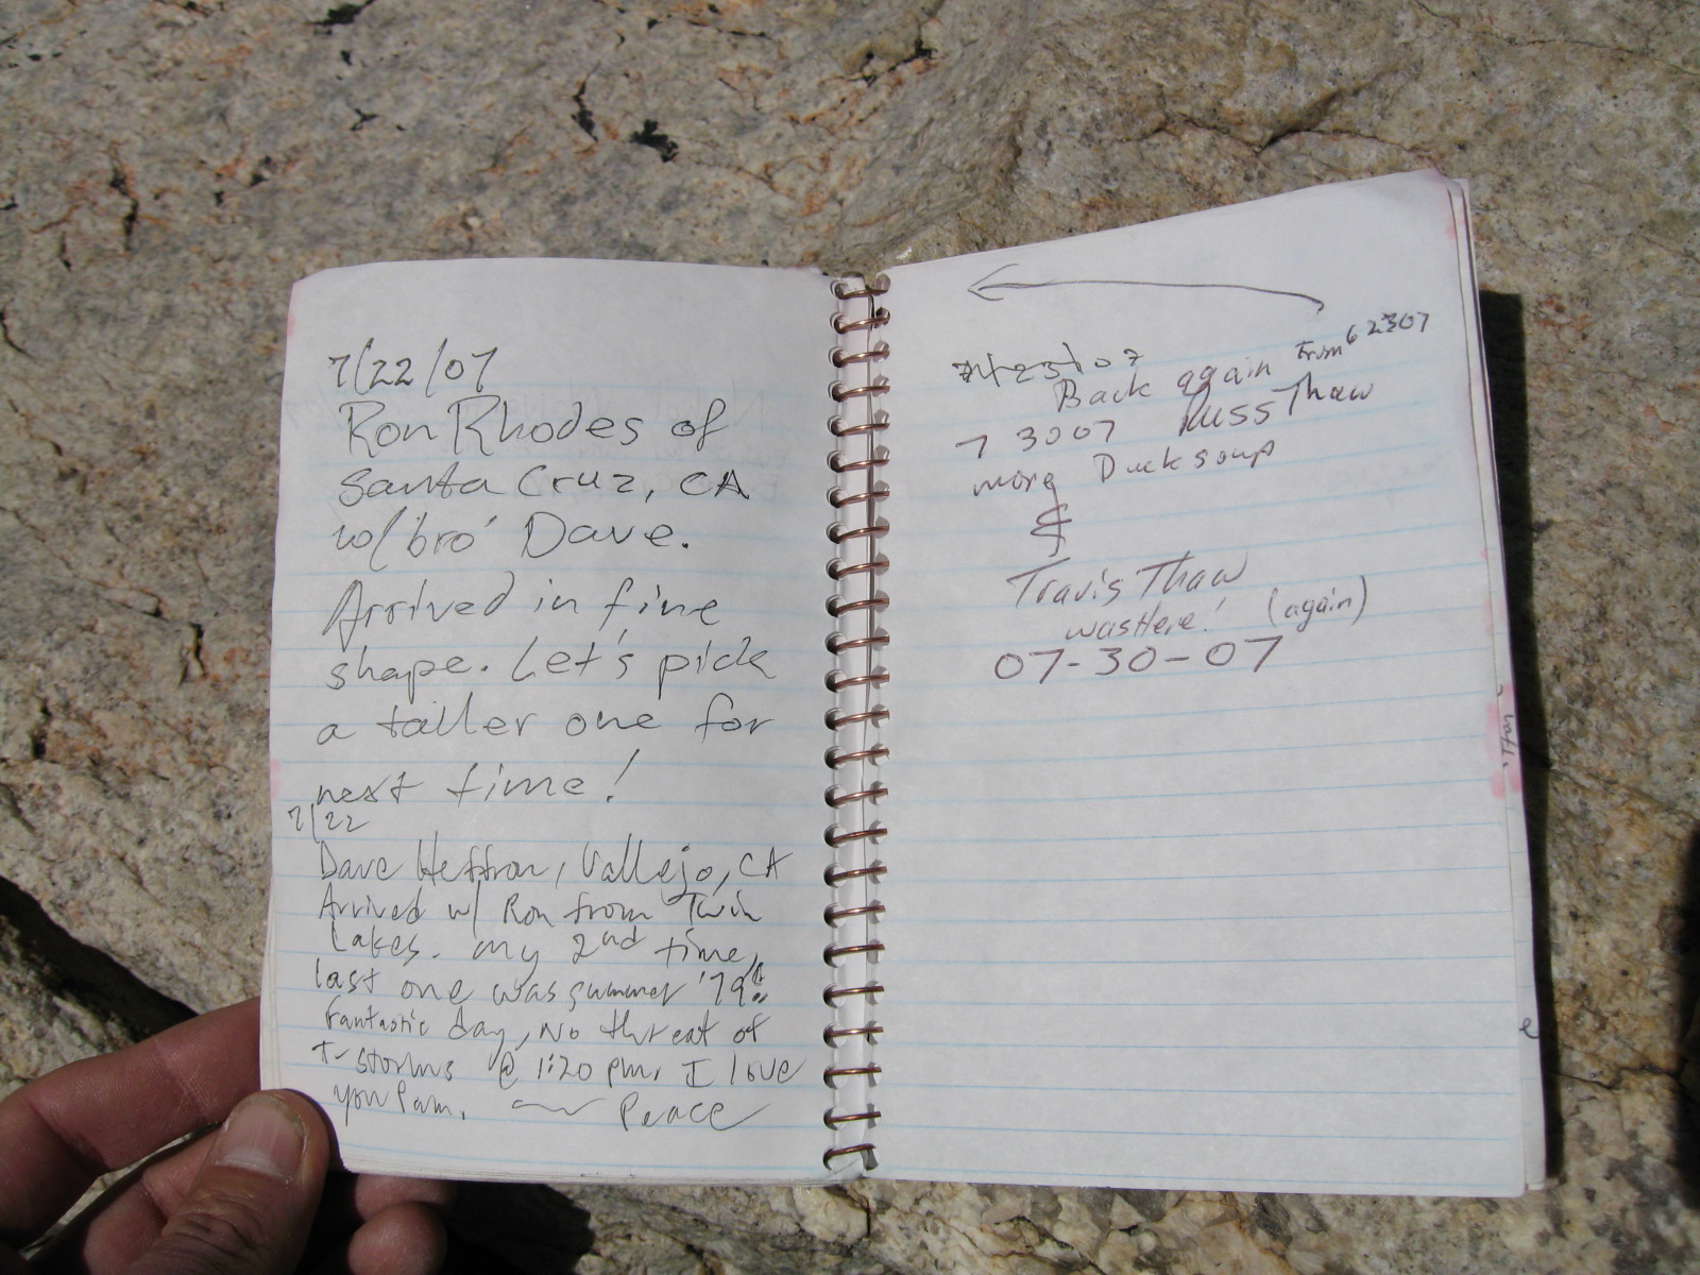 7/22/07
Ron Rhodes of
Santa Cruz, CA
w/ 'bro' Dave.
Arrived in fine
shape. Let's pick
a taller one for
next time!
7/22
Dave Heffron, Vallejo, CA
Arrived w/ Ron from Twin
Lakes. my 2nd time,
last one was summer '79!!
Fantastic day, No threat of
T-storms @ 1:20 pm. I love
you Pam. Peace
7/23/07
Back again From 6 23 07
7 30 07 Russ Thaw
more Duck soup
&
Travis Thaw
was Here! (again)
07-30-07